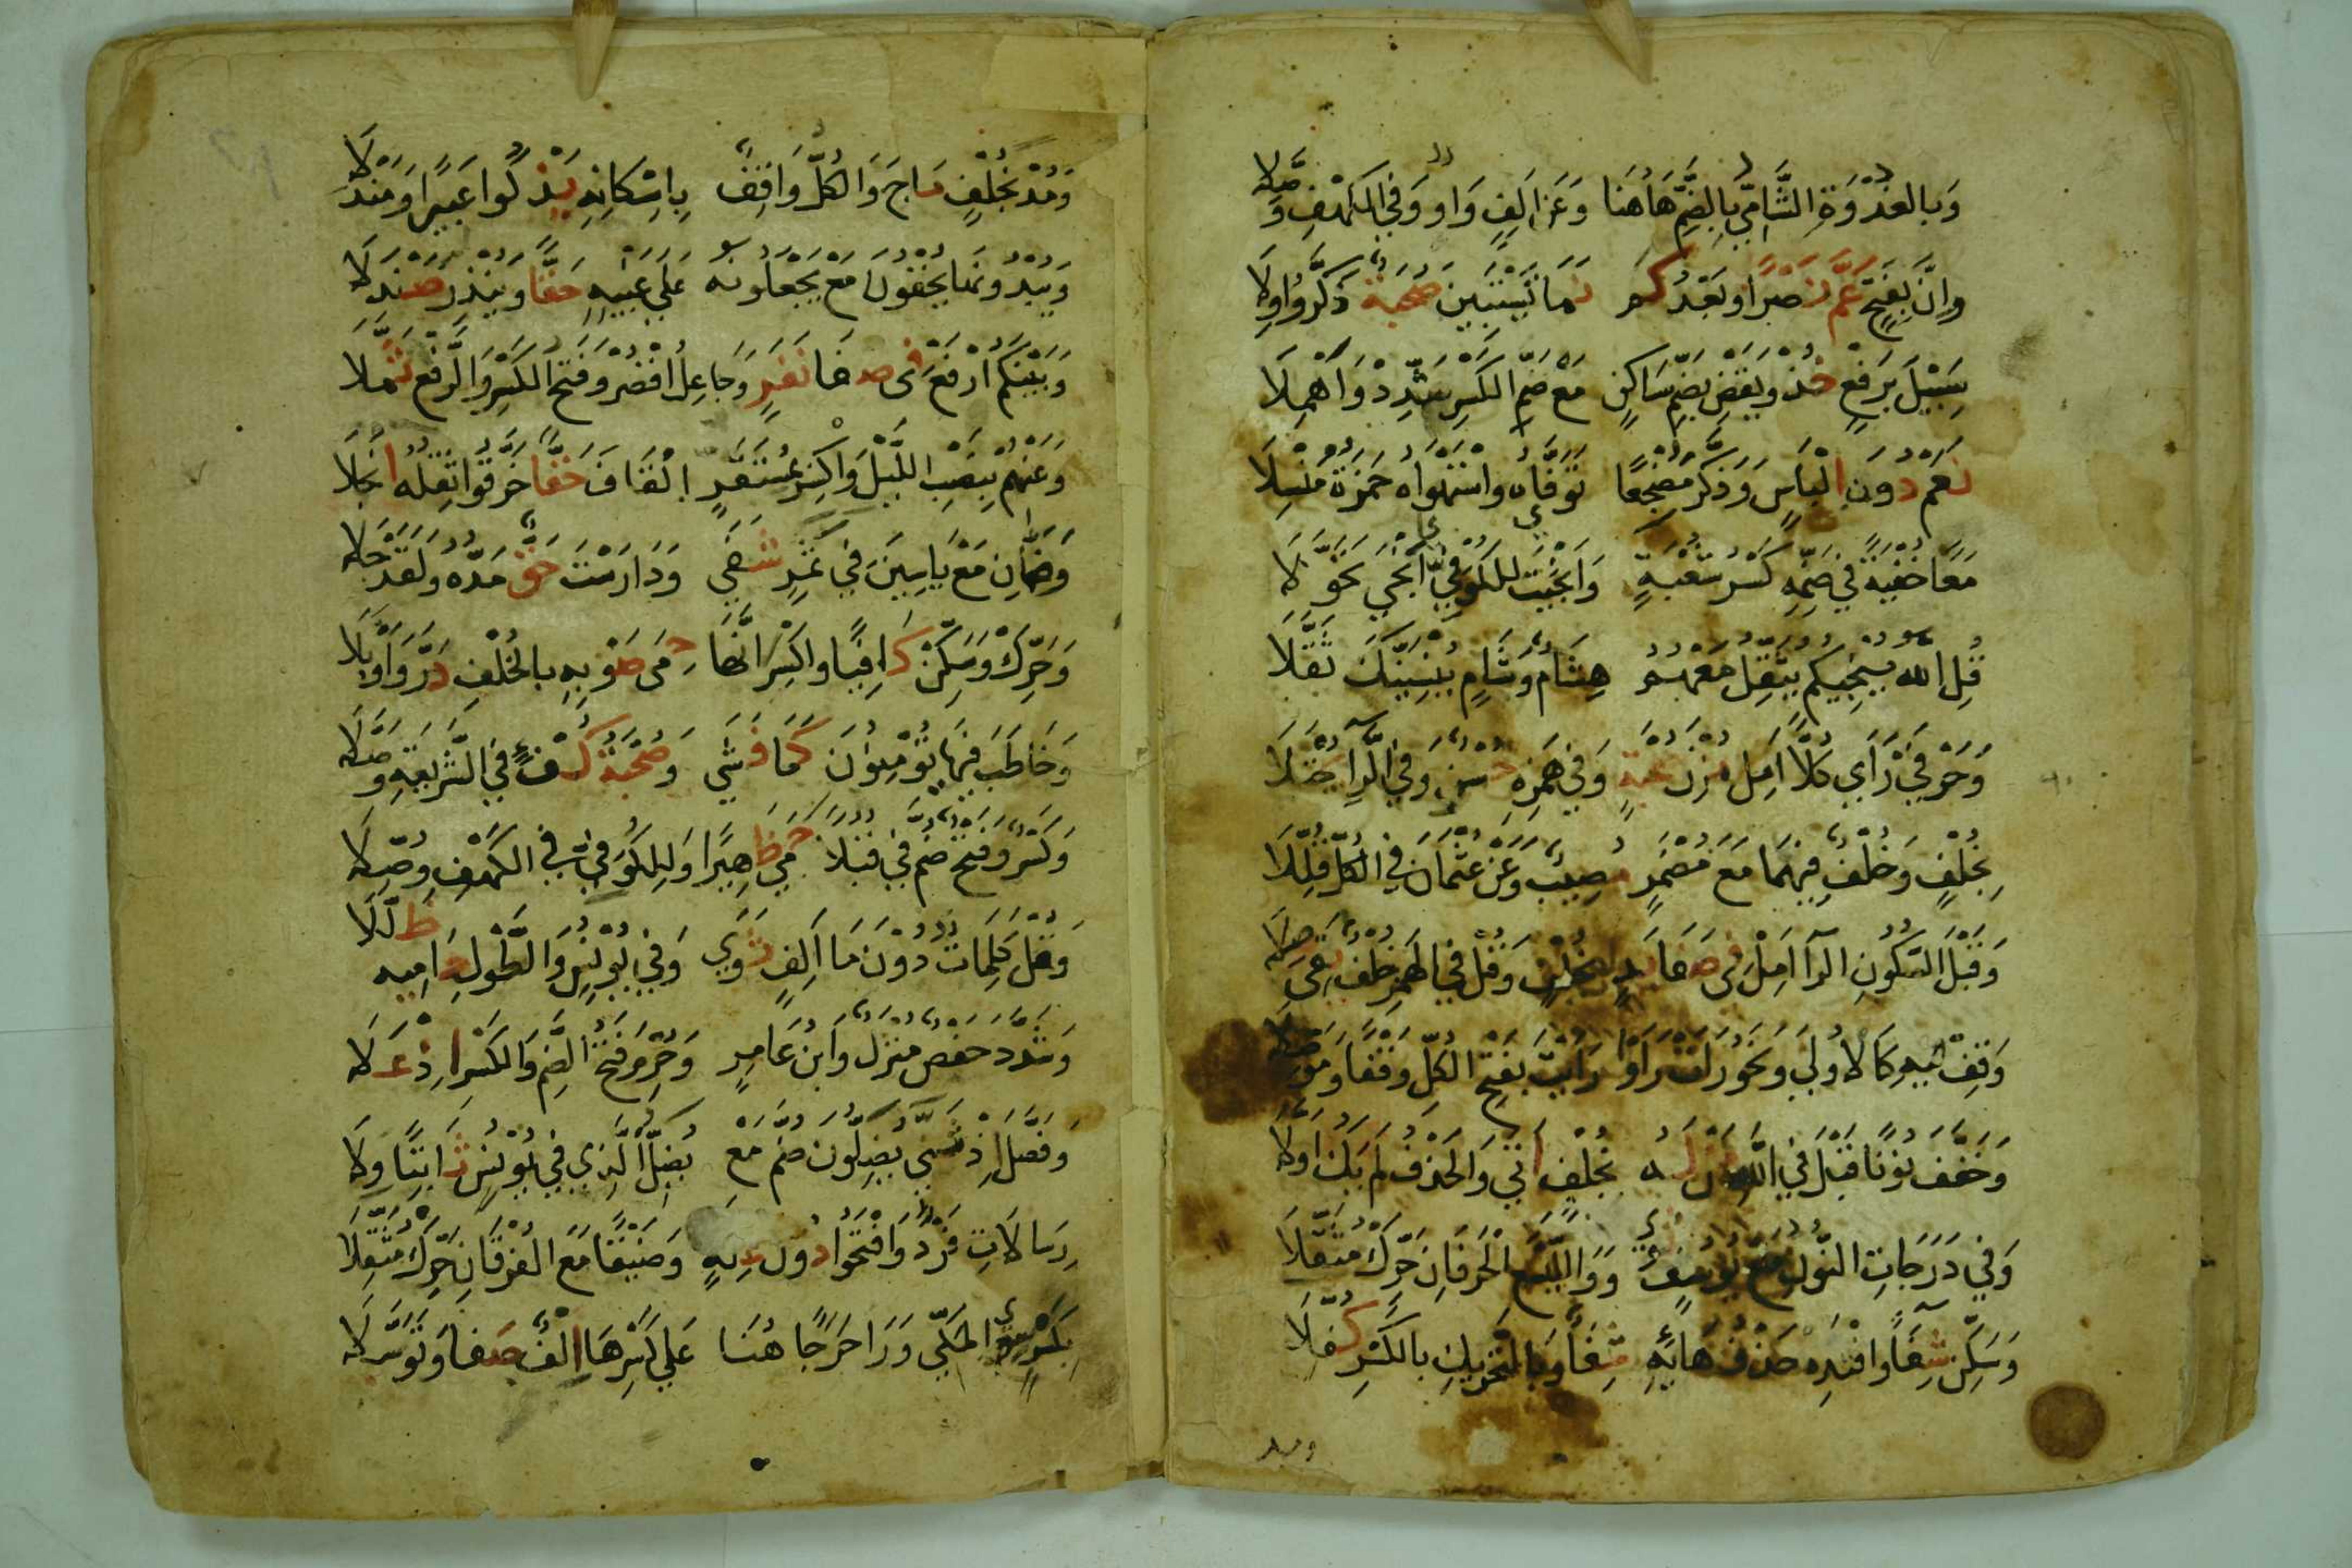 وَبِالغُدْوَةِ الشَّامِيُّ بِالضَّمِّ هَاهُنَا وَعَنْ أَلِفٍ وَاوٌ وَفِي الكَهْفِ وَصَّلَا
وَإِنَّ بِفَتْحٍ عَمَّ نَصْرًا وَبَعْدُ كَمْ نَمَا تَسْتَبِينَ صُحْبَةٌ ذَكَّرُوا وِلَا
سَبِيلَ بِرَفْعٍ خُذْ وَيَقْضِ بِضَمِّ سَاكِنٍ مَعْ ضَمِّ الكَسْرِ شَدِّدْ وَأَهْمِلَا
نَعَمْ دُونَ إِلْبَاسٍ وَذَكَّرَ مُضْجِعًا تَوَفَّاهُ وَاسْتَهْوَاهُ حَمْزَةُ مُنْسِلَا
مَعًا خُفْيَةً فِي ضَمِّهِ كَسْرُ شُعْبَةٍ وَأَنْجَيْتَ لِلكُوفِيِّ أَنْجَى تَحَوَّلَا
قُلِ اللهُ يُنْجِيكُمْ يُثَقِّلُ مَعْهُمُ هِشَامٌ وَشَامٍ يُنْسِيَنَّكَ ثَقَّلَا
وَحَرْفَيْ رَأَى كُلًّا أَمِلْ مُزْنَ صُحْبَةٍ وَفِي هَمْزِهِ حُسْنٌ وَفِي الرَّاءِ يُجْتَلَا
بِخُلْفٍ وَخُلْفٌ فِيهِمَا مَعَ مُضْمَرٍ مُصِيبٌ وَعَنْ عُثْمَانَ فِي الكُلِّ قَلِّلَا
وَقَبْلَ السُّكُونِ الرَّا أَمِلْ فِي صَفَا يَدٍ بِخُلْفٍ وَقُلْ فِي الهَمْزِ خُلْفٌ يَقِي صِلَا
وَقِفْ فِيهِ كَالأُولَى وَنَحْوُ رَأَتْ رَأَوْا رَأَيْتَ بِفَتْحِ الكُلِّ وَقْفًا وَمَوْصِلَا
وَخَفَّفَ نُونًا قَبْلَ فِي اللهِ مَنْ لَهُ بِخُلْفٍ أَتَى وَالحَذْفُ لَمْ يَكُ أَوَّلَا
وَفِي دَرَجَاتِ النُّونُ مَعْ يُوسُفٍ ثَوَى وَوَاللَّيْسَعَ الحَرْفَانِ حَرِّكْ مُثَقِّلَا
وَسَكِّنْ شِفَاءً وَاقْتَدِهْ حَذْفُ هَائِهِ شِفَاءً وَبِالتَّحْرِيكِ بِالكَسْرِ كُفِّلَا
وَمُدَّ بِخُلْفٍ مَاجَ وَالكُلُّ وَاقِفٌ بِإِسْكَانِهِ يَذْكُو عَبِيرًا وَمَنْدَلَا
وَيُبْدُونَهَا يُخْفُونَ مَعْ يَجْعَلُونَهُ عَلَى غَيْبِهِ حَقًّا وَيُنْذِرَ صَنْدَلَا
وَبَيْنَكُمُ ارْفَعْ فِي صَفَا نَفَرٍ وَجَاعِلُ اقْصُرْ وَفَتْحُ الكَسْرِ وَالرَّفْعِ ثُمِّلَا
وَعَنْهُمْ بِنَصْبِ اللَّيْلِ وَاكْسِرْ بِمُسْتَقَرٍّ القَافَ حَقًّا خَرَّقُوا ثِقْلُهُ انْجَلَا
وَضَمَّانِ مَعْ يَاسِينَ فِي ثَمَرٍ شَفَى وَدَارَسْتَ حَقٌّ مَدُّهُ وَلَقَدْ حَلَا
وَحَرِّكْ وَسَكِّنْ كَافِيًا وَاكْسِرَ انَّهَا حِمَى صَوْبِهِ بِالخُلْفِ دَرَّ وَأَوْبَلَا
وَخَاطَبَ فِيهَا يُؤْمِنُونَ كَمَا فَشَى وَصُحْبَةُ كُفْؤٍ فِي الشَّرِيعَةِ وَصَّلَا
وَكَسْرٌ وَفَتْحٌ ضُمَّ فِي قِبَلًا حَمَى ظَهِيرًا وَلِلكُوفِيِّ فِي الكَهْفِ وُصِّلَا
وَقُلْ كَلِمَاتٌ دُونَ مَا أَلِفٍ ثَوَى وَفِي يُونُسٍ وَالطَّوْلِ حَامِيهِ ظَلَّلَا
وَشَدَّدَ حَفْصٌ مُنْزَلٌ وَابْنُ عَامِرٍ وَحُرِّمَ فَتْحُ الضَّمِّ وَالكَسْرِ إِذْ عَلَا
وَفُصِّلَ إِذْ ثَنَّى يُضِلُّونَ ضُمَّ مَعْ يُضِلُّوا الَّذِي فِي يُونُسٍ ثَابِتًا وَلَا
رِسَالَاتِ فَرْدٌ وَافْتَحُوا دُونَ عِلَّةٍ وَضَيْقًا مَعَ الفُرْقَانِ حَرِّكْ مُثَقِّلَا
بِكَسْرٍ سِوَى المَكِّي وَرَا حَرَجًا هُنَا عَلَى كَسْرِهَا إِلْفٌ صَفَا وَتَوَسَّلَا